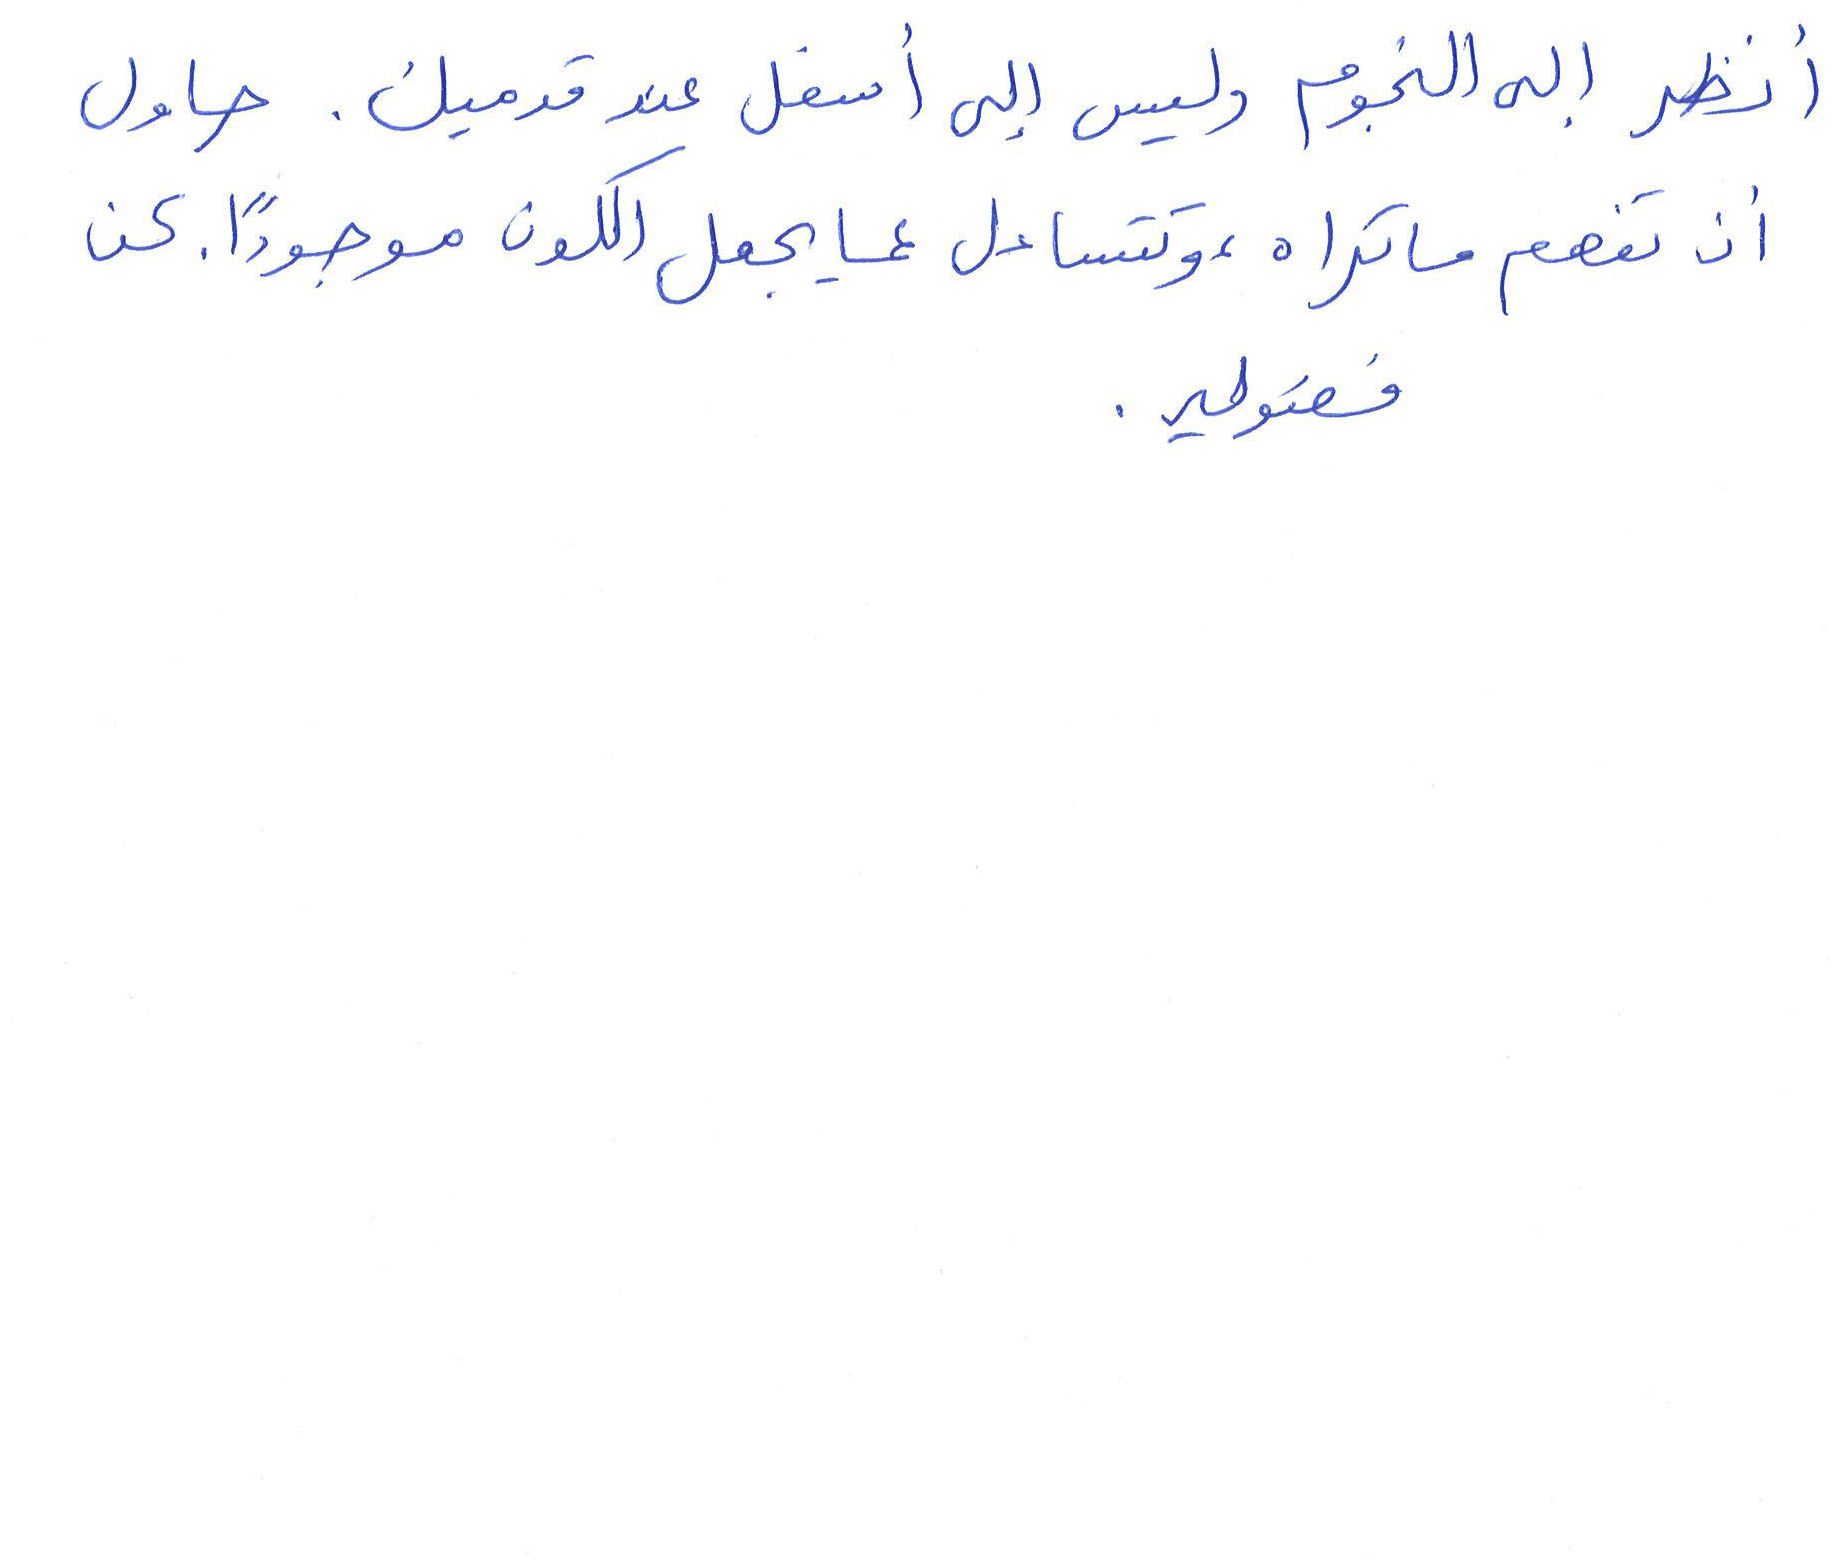 أنظر إلى النجوم وليس إلى أسفل عند قدميك. حاول
أن تفهم ماتراه، وتتساءل عما يجعل الكون موجودًا. كن
فضولي.